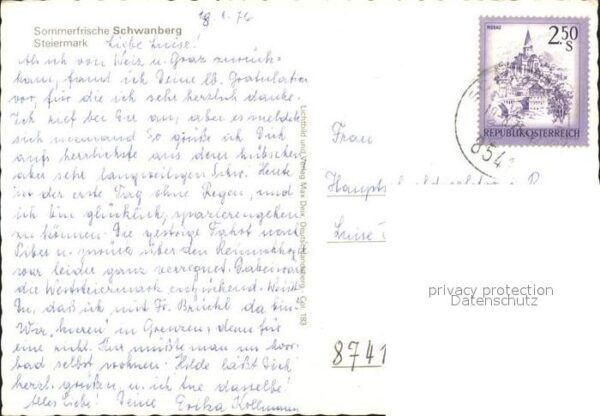 18.1.76
Sommerfrische Schwanberg
Steiermark
Liebe Luise!
Als ich von Weiz u. Graz zurück-
kam, fand ich Deine lb. Gratulation
vor, für die ich sehr herzlich danke.
Ich rief bei Dir an, aber es meldete
sich niemand. So grüße ich Dich
aufs herzlichste aus dem hübschen,
aber sehr langweiligen Schw. Heute
ist der erste Tag ohne Regen, und
ich bin glücklich, spazierengehen
zu können. Die gestrige Fahrt nach
Piber u. zurück über den
war leider ganz verregnet. Dabei
die Weststeiermark entzückend. Weißt
Du, daß ich mit Fr. Brückl da bin.
Wir "kuren" in Grenzen, denn für
eine richt. Kur müßte man im Moor-
bad selbst wohnen. Hilde läßt Dich
herzl. grüßen u. ich tue dasselbe!
Alles Liebe! Deine Erika Kollmann
Lichtbild und Verlag Max Deix, Deutschlandsberg Col. 183
Frau
Luise
8741
MURAU
2.50
S
REPUBLIK ÖSTERREICH
854
privacy protection
Datenschutz